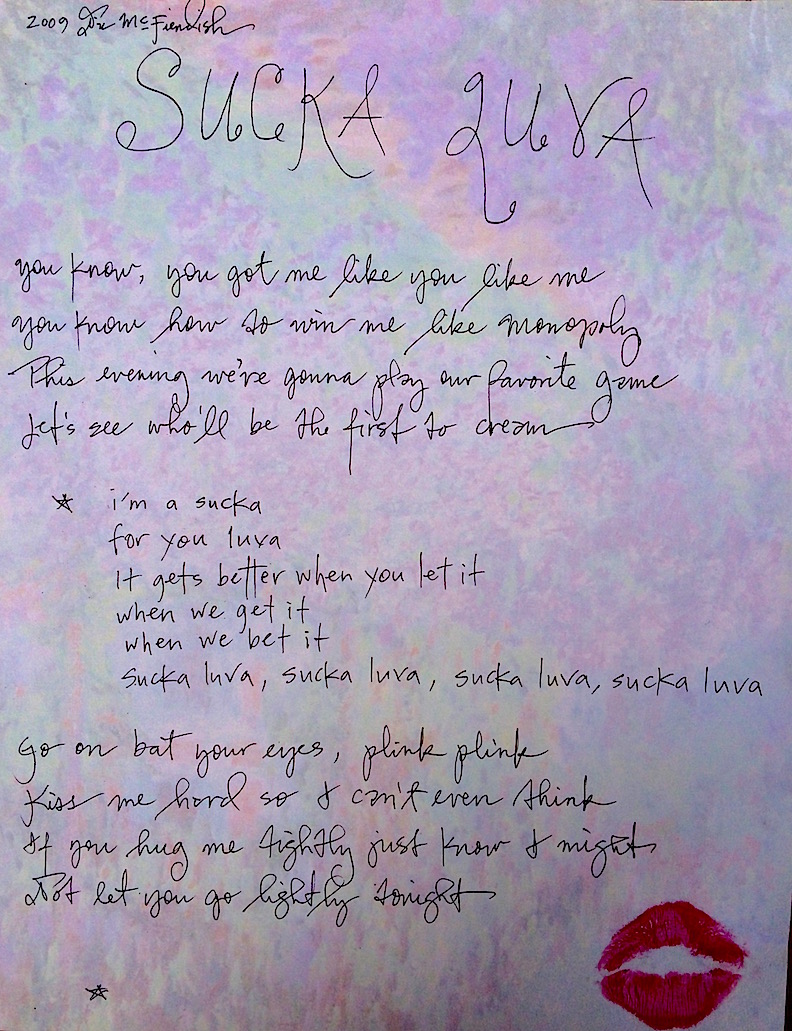 2009 Dr McFiendish
SUCKA LUVA
you know, you got me like you like me
you know how to win me like monopoly
This evening we're gonna play our favorite game
Let's see who'll be the first to cream
☆ i'm a sucka
for you luva
It gets better when you let it
when we get it
when we bet it
sucka luva, sucka luva, sucka luva, sucka luva
Go on bat your eyes, plink plink
Kiss me hard so I can't even think
If you hug me tightly just know I might
Not let you go lightly tonight
☆